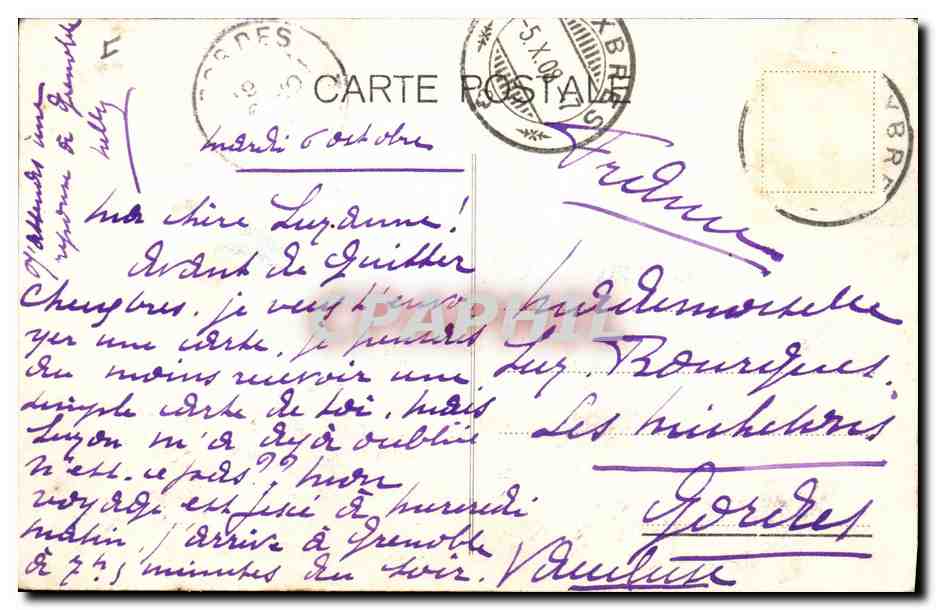 GORDES
XBRES
-5.X.08.VI
CARTE POSTALE
XBRE
mardi 6 octobre
Ma chère Suzanne!
Avant de quitter
Chexbres, je veux t'envo
yer une carte, je pensais
au moins recevoir une
simple carte de toi, mais
Suzon m'a déjà oubliée
n'est-ce pas?? Mon
voyage est fixé à mercredi
matin, j'arrive à Grenoble
à 7h5 minutes du soir.
J'attends une
réponse à Grenoble
Nelly
France
Mademoiselle
Suz. Bourgues.
Les Michelons
Gordes
Vaucluse
CPAPHIL